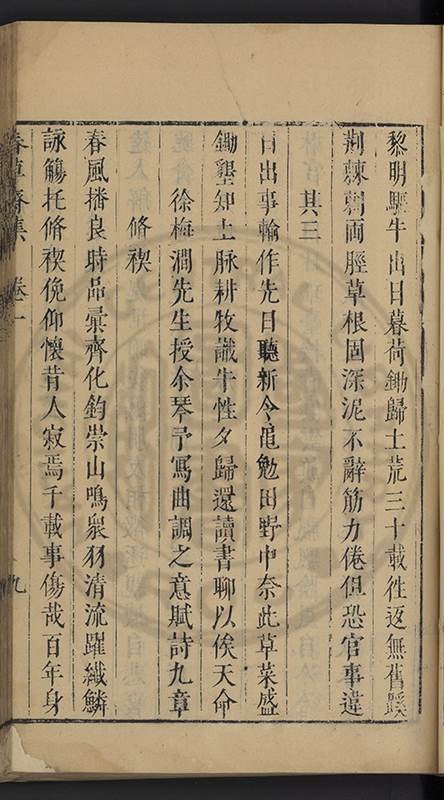 黎明驅牛出日暮荷鋤歸土荒三十載徃返無舊蹊
荆棘剌兩脛草根固深泥不辭筋力倦但恐官事違
其三
日出事輸作先日聽新令黽勉田野中奈此草萊盛
鋤墾知土脉耕牧識牛性夕歸還讀書聊以俟天命
徐梅澗先生授余琴予寫曲調之意賦詩九章
脩禊
春風播良時品彙齊化鈞崇山鳴衆羽清流躍纖鱗
詠觴托脩禊俛仰懷昔人寂焉千載事傷哉百年身
春草齋集 卷一 九